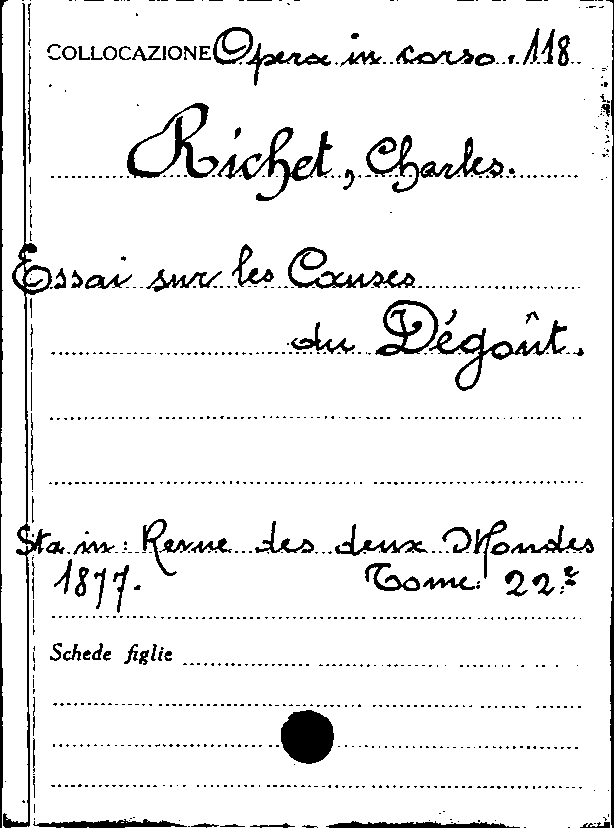 COLLOCAZIONE Opera in corso. 118
Richet, Charles.
Essai sur les Causes
du Dégoût.
Sta in: Revue des deux Mondes
1877. Tome 22.e
Schede figlie